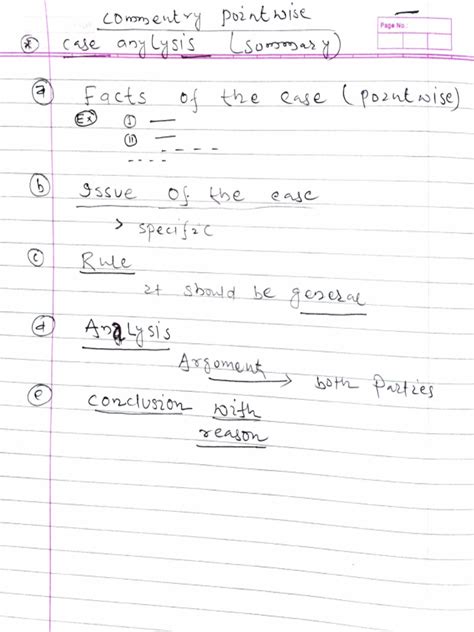 commentry pointwise
Page No.
* case anylysis (summary)
a Facts of the case (pointwise)
Ex I —
II —
b Issue of the case
> specific
c Rule
It should be general
d Analysis
Argoment → both Parties
e conclusion with
reason